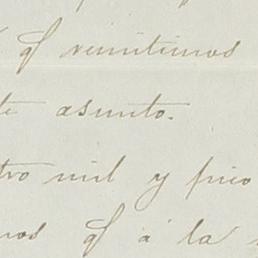 qf remitimos
te asunto.
tro mil y pico
mos qf á la